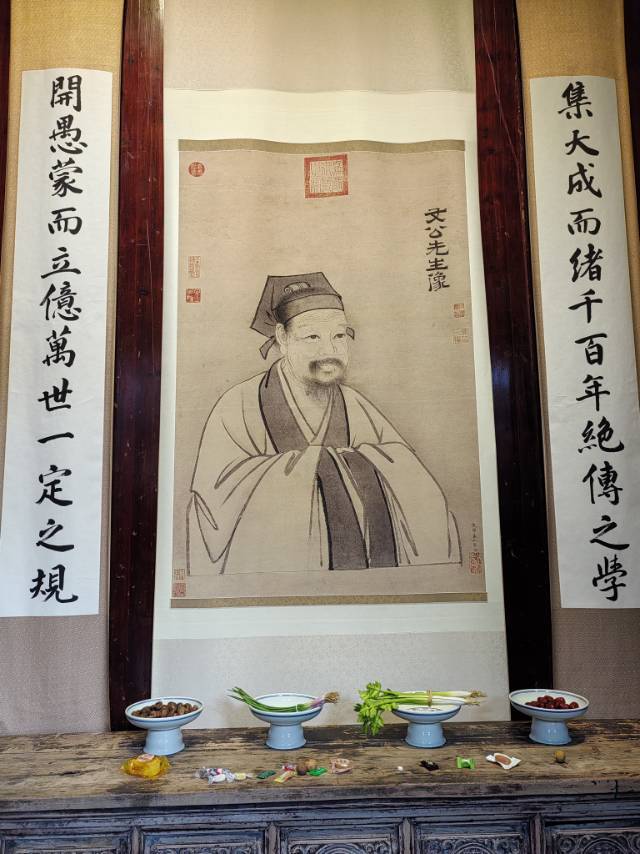 集大成而緒千百年絶傳之學
文公先生像
開愚蒙而立億萬世一定之規